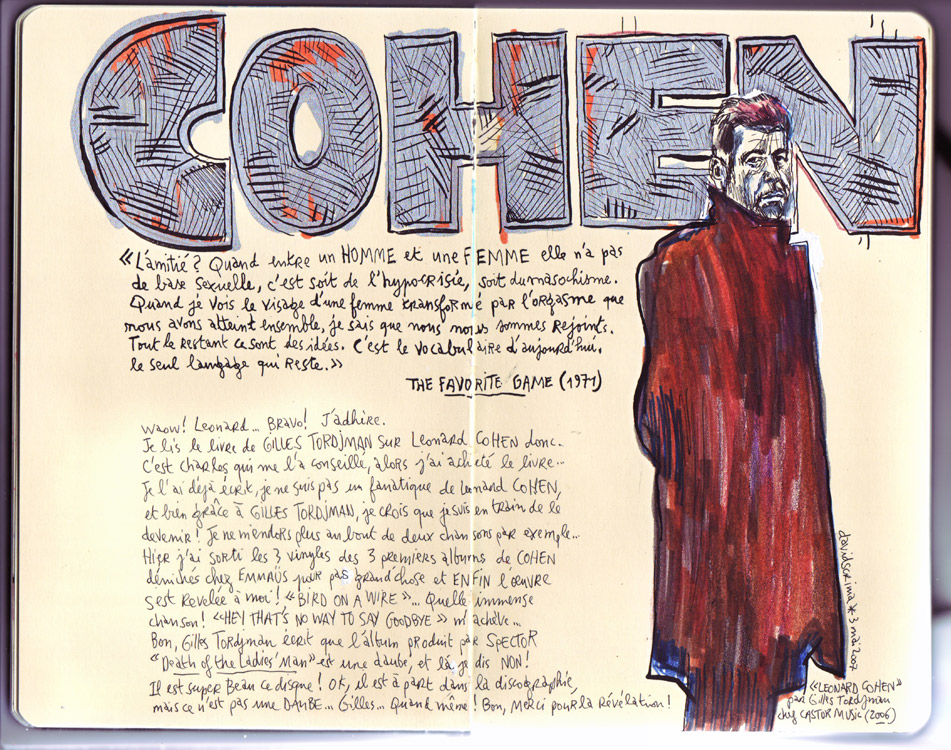 COHEN
« L'amitié ? Quand entre un HOMME et une FEMME elle n'a pas
de base sexuelle, c'est soit de l'hypocrisie, soit du masochisme.
Quand je vois le visage d'une femme transformé par l'orgasme que
nous avons atteint ensemble, je sais que nous nous sommes rejoints.
Tout le restant ce sont des idées. C'est le vocabulaire d'aujourd'hui.
le seul langage qui reste. »
THE FAVORITE GAME (1971)
waow! Leonard... Bravo! J'adhère.
Je lis le livre de GILLES TORDJMAN sur Leonard COHEN donc.
C'est charles qui me l'a conseillé, alors j'ai acheté le livre...
Je l'ai déjà écrit, je ne suis pas un fanatique de Leonard COHEN,
et bien grâce à GILLES TORDJMAN, je crois que je suis en train de le
devenir! Je ne m'endors plus au bout de deux chansons par exemple...
Hier j'ai sorti les 3 vinyles des 3 premiers albums de COHEN
dénichés chez EMMAÜS pour pas grand'chose et ENFIN l'œuvre
s'est révélée à moi! « BIRD ON A WIRE »... Quelle immense
chanson! « HEY THAT'S NO WAY TO SAY GOODBYE » m'achève...
Bon, Gilles Tordjman écrit que l'album produit par SPECTOR
« Death of the Ladies' Man » est une daube, et là je dis NON!
Il est super Beau ce disque! OK, il est à part dans la discographie,
mais ce n'est pas une DAUBE... Gilles... Quand même! Bon, Merci pour la Révélation!
davidscrima * 3 mai 2007
« LEONARD COHEN »
par Gilles Tordjman
chez CASTOR MUSIC (2006)